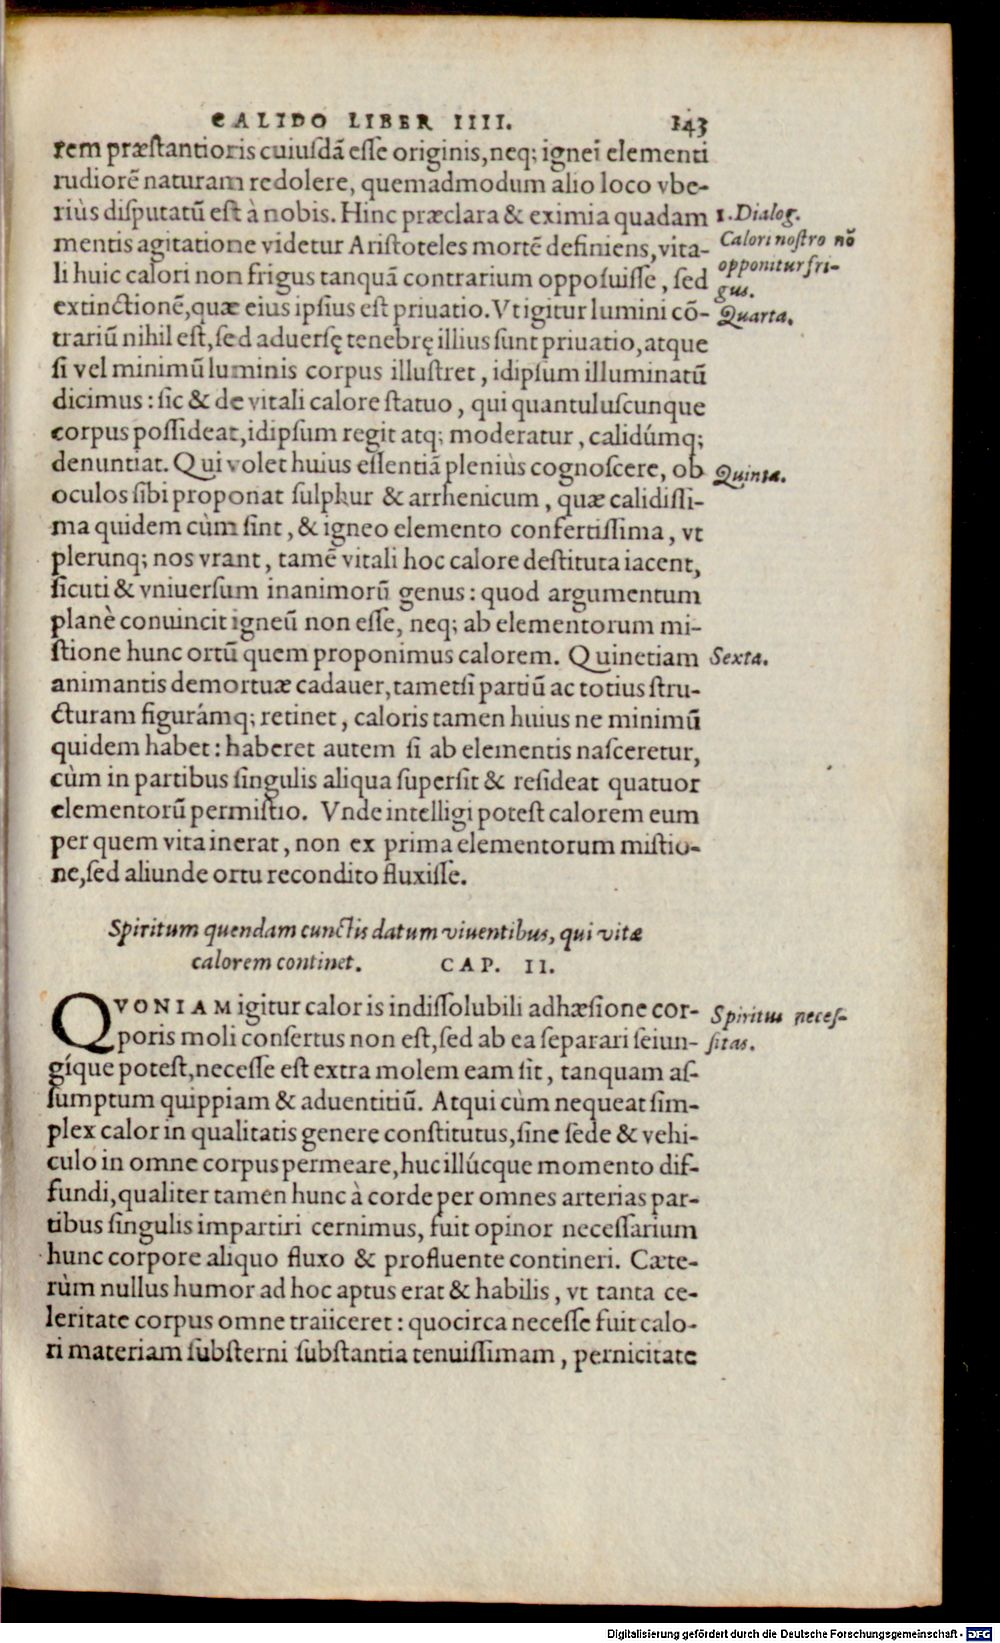 CALIDO LIBER IIII. 143
rem præstantioris cuiusdā esse originis, neq; ignei elementi
rudiorē naturam redolere, quemadmodum alio loco vbe-
riùs disputatū est à nobis. Hinc præclara & eximia quadam
1. Dialog.
mentis agitatione videtur Aristoteles mortē definiens, vita-
Calori nostro nō
li huic calori non frigus tanquā contrarium opposuisse, sed
opponitur fri-
gus.
extinctionē, quæ eius ipsius est priuatio. Vt igitur lumini cō-
Quarta.
trariū nihil est, sed aduersę tenebrę illius sunt priuatio, atque
si vel minimū luminis corpus illustret, id ipsum illuminatū
dicimus: sic & de vitali calore statuo, qui quantuluscunque
corpus possideat, idipsum regit atq; moderatur, calidúmq;
denuntiat. Qui volet huius essentiā pleniùs cognoscere, ob
Quinta.
oculos sibi proponat sulphur & arrhenicum, quæ calidissi-
ma quidem cùm sint, & igneo elemento confertissima, vt
plerunq; nos vrant, tamē vitali hoc calore destituta iacent,
sicuti & vniuersum inanimorū genus: quod argumentum
planè conuincit igneū non esse, neq; ab elementorum mi-
stione hunc ortū quem proponimus calorem. Quinetiam
Sexta.
animantis demortuæ cadauer, tametsi partiū ac totius stru-
cturam figurámq; retinet, caloris tamen huius ne minimū
quidem habet: haberet autem si ab elementis nasceretur,
cùm in partibus singulis aliqua supersit & resideat quatuor
elementorū permistio. Vnde intelligi potest calorem eum
per quem vita inerat, non ex prima elementorum mistio-
ne, sed aliunde ortu recondito fluxisse.
Spiritum quendam cunctis datum viuentibus, qui vitæ
calorem continet. CAP. II.
QVONIAM igitur calor is indissolubili adhæsione cor-
Spiritus neces-
poris moli consertus non est, sed ab ea separari seiun-
sitas.
gíque potest, necesse est extra molem eam sit, tanquam as-
sumptum quippiam & aduentitiū. Atqui cùm nequeat sim-
plex calor in qualitatis genere constitutus, sine sede & vehi-
culo in omne corpus permeare, huc illúcque momento dif-
fundi, qualiter tamen hunc à corde per omnes arterias par-
tibus singulis impartiri cernimus, fuit opinor necessarium
hunc corpore aliquo fluxo & profluente contineri. Cæte-
rùm nullus humor ad hoc aptus erat & habilis, vt tanta ce-
leritate corpus omne traiiceret: quocirca necesse fuit calo-
ri materiam substerni substantia tenuissimam, pernicitate
Digitalisierung gefördert durch die Deutsche Forschungsgemeinschaft - DFG